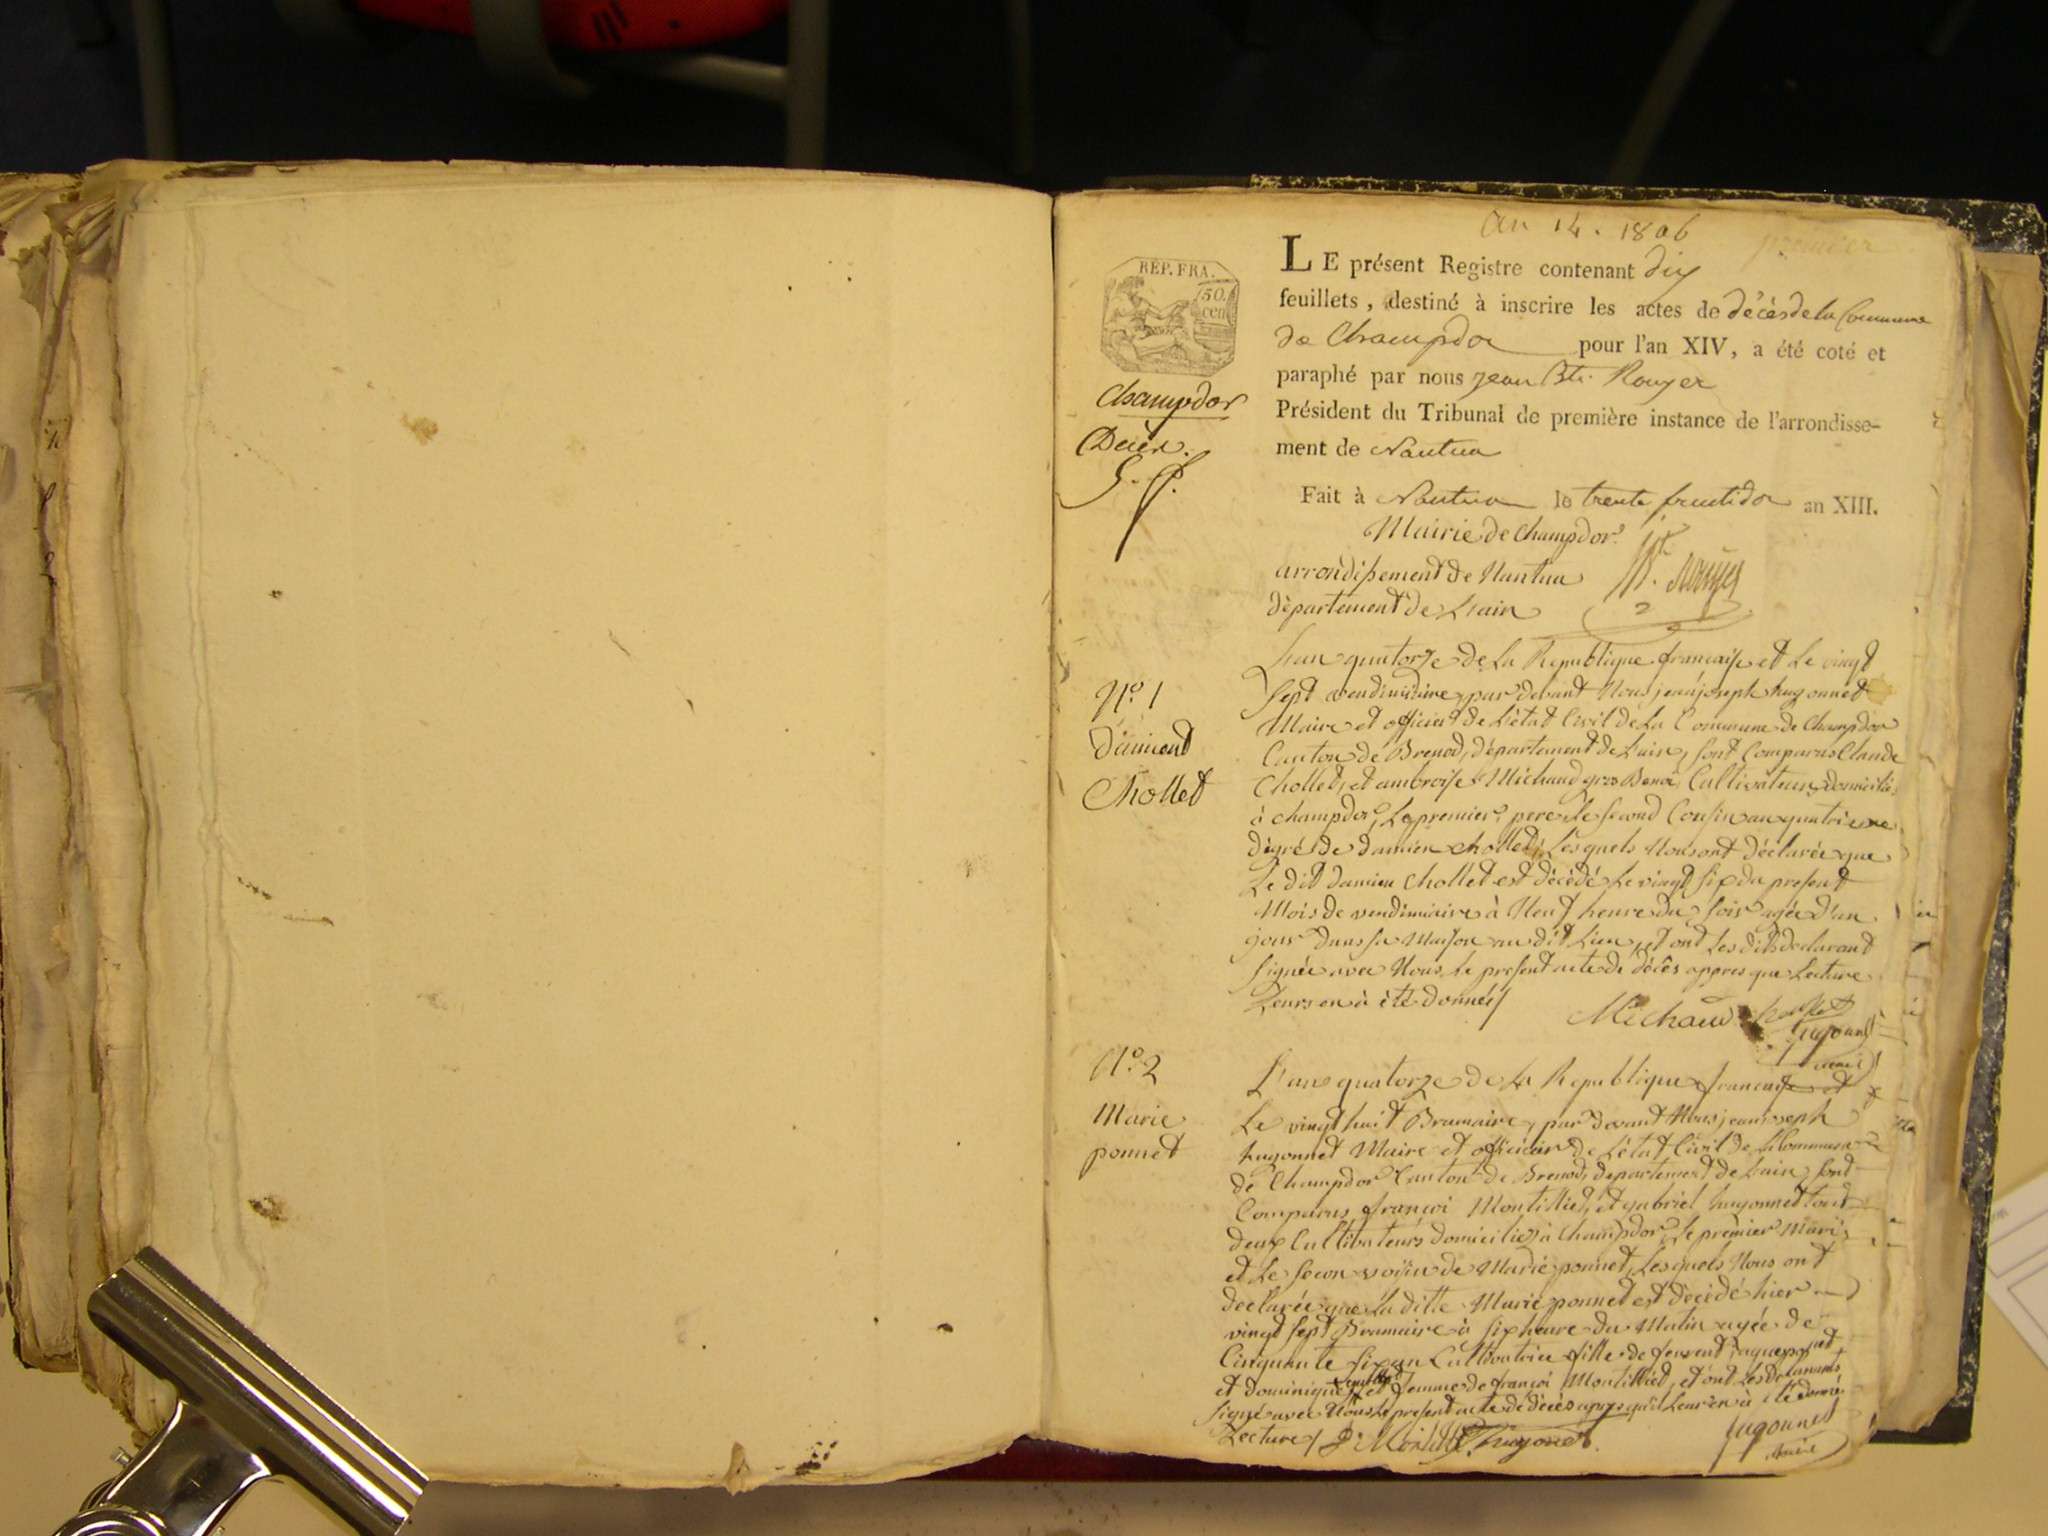 an 14. 1806
premier
REP. FRA.
50.
cen
LE présent Registre contenant dix
feuillets, destiné à inscrire les actes de décès de la Commune
de Champdor pour l'an XIV, a été coté et
paraphé par nous jean Bte. Rouyer
Président du Tribunal de première instance de l'arrondisse-
ment de Nantua
Champdor
Décès.
Fait à Nantua le trente fructidor an XIII.
Mairie de Champdor
arrondissement de Nantua
département de Lain
Rouyer
No. 1
Damient
Chollet
Lan quatorze de La Republique française et Le vingt
Sept vendimiaire, par devant Nous jean joseph hugonnet
Maire et officier de L'état Civil de La Commune de Champdor
Canton de Brenod, département de Lain, sont Comparus Claude
Chollet, et ambroise Michaud gros Benoi, Cultivateurs domicilies
à champdor, Le premier pere, le second Cousin au quatrieme
dégré de damien chollet, Lesquels Nous ont déclarée que
Le dit damien Chollet est décédé Le vingt six du present
Mois de vendimiaire à Neuf heure du soir agée d'un
jour dans sa Maison au dit Lieu, et ont Les dits declarant
signée avec Nous Le present acte de décès appres que Lecture
Leurs en à été donnée/
Michaud Chollet
hugonnet
maire
No. 2
Marie
ponnet
L'an quatorze de La Republique française et
Le vingt huit Brumaire, par devant Nous jean joseph
hugonnet Maire et officier de L'état Civil de la Commune
de Champdor Canton de Brenod, departement de Lain, sont
Comparus françoi Montillied, et gabriel hugonnet tout
deux Cultivateurs domicilies à Champdor, Le premier Mari
et Le secon voisin de Marie ponnet, Lesquels Nous ont
declarée que la ditte Marie ponnet est décédé hier
vingt sept Brumaire à six heure du Matin agée de
Cinquante six an Cultivatrice fille de feu ponnet
et dominique et femme de françoi Montillied, et ont Les declarants
signé avec Nous Le present acte de décès apres qu'il Leur en à été donné
Lecture/ hugonet
hugonnet
maire